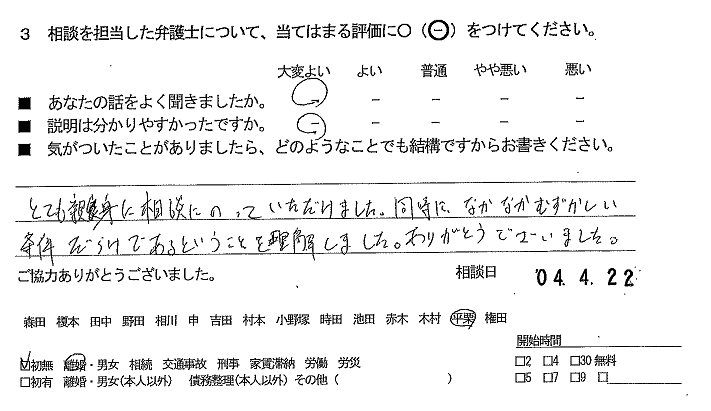 3 相談を担当した弁護士について、当てはまる評価に○（⊖）をつけてください。
大変よい よい 普通 やや悪い 悪い
■ あなたの話をよく聞きましたか。 － － － － －
■ 説明は分かりやすかったですか。 － － － － －
■ 気がついたことがありましたら、どのようなことでも結構ですからお書きください。
とても親身に相談にのっていただけました。同時に、なかなかむずかしい
条件だらけであるということを理解しました。ありがとうございました。
ご協力ありがとうございました。 相談日 '04. 4. 22
森田 榎本 田中 野田 相川 申 吉田 村本 小野塚 時田 池田 赤木 木村 平栗 権田
開始時間
☑初無 離婚・男女 相続 交通事故 刑事 家賃滞納 労働 労災 □2 □4 □30 無料
□初有 離婚・男女(本人以外) 債務整理(本人以外) その他 ( ) □5 □7 □9 □